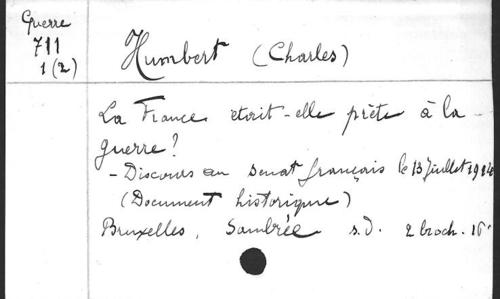 Guerre
711
1 (2)
Humbert (Charles)
La France était-elle prête à la
guerre?
- Discours au Senat français le 13 Juillet 1914
(Document historique)
Bruxelles, Sombrée s.d. 2 broch. 16°